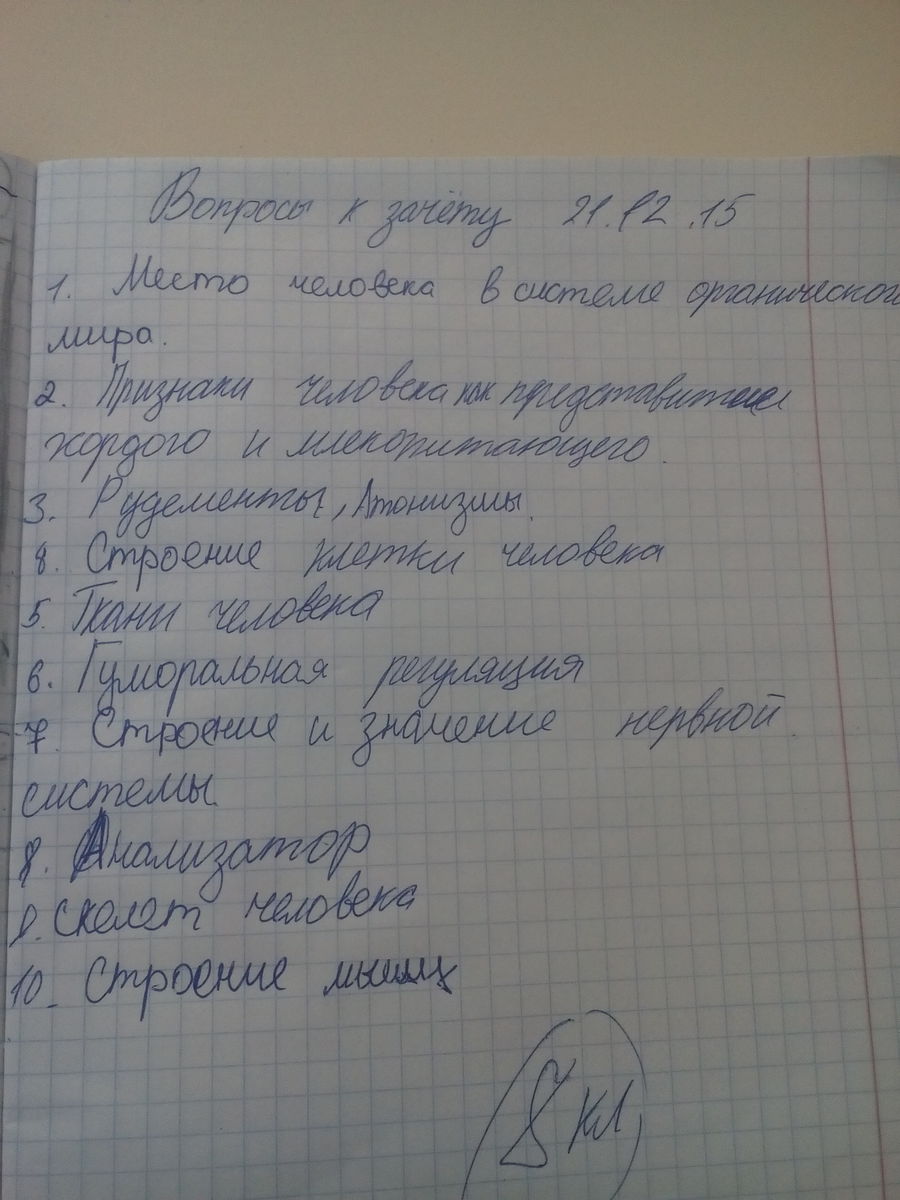 Вопросы к зачёту 21.12.15
1. Место человека в системе органического
мира.
2. Признаки человека как представителя
хордого и млекопитающего.
3. Рудементы, Атонизмы.
8. Строение клетки человека
5. Ткани человека
6. Гуморальная регуляция
7. Строение и значение нервной
системы.
8. Анализатор
9. Скелет человека
10. Строение мышц
8 кл